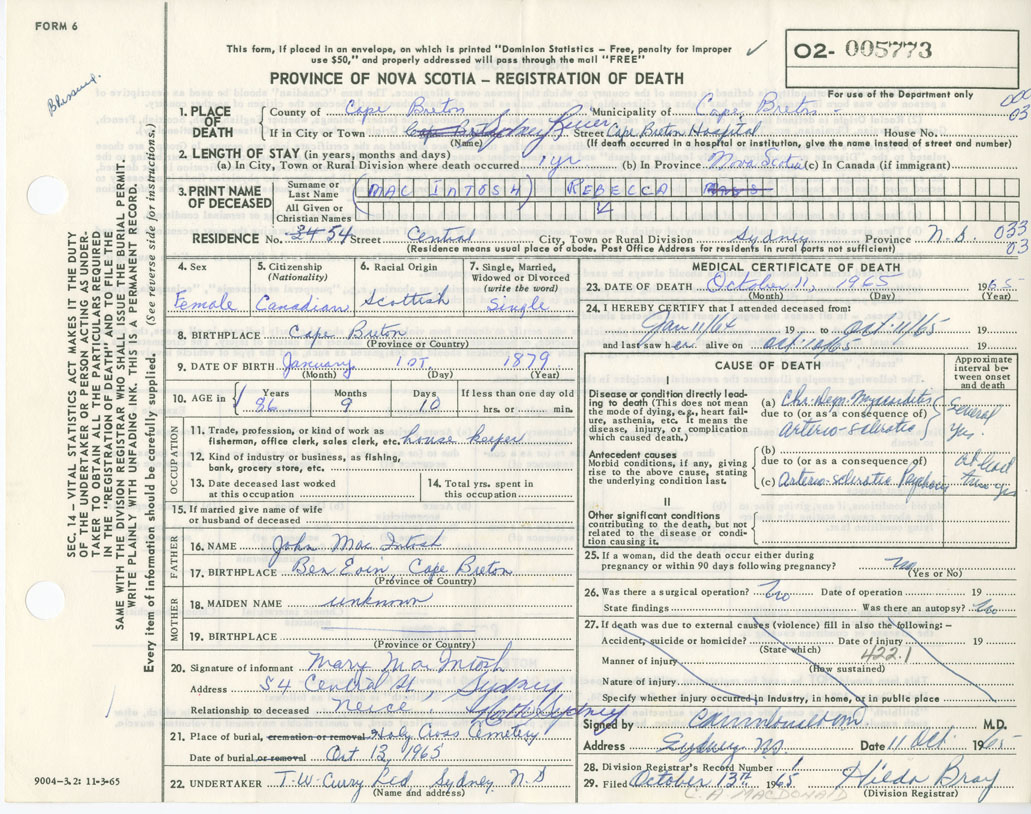 FORM 6
This form, if placed in an envelope, on which is printed "Dominion Statistics – Free, penalty for improper
use $50," and properly addressed will pass through the mail "FREE"
02- 005773
PROVINCE OF NOVA SCOTIA – REGISTRATION OF DEATH
For use of the Department only
1. PLACE OF DEATH
County of Cape Breton Municipality of Cape Breton
If in City or Town Sydney River Street Cape Breton Hospital House No.
(Name) (If death occurred in a hospital or institution, give the name instead of street and number)
2. LENGTH OF STAY (in years, months and days)
(a) In City, Town or Rural Division where death occurred 1 yr (b) In Province Nova Scotia (c) In Canada (if immigrant)
3. PRINT NAME OF DECEASED
Surname or Last Name MAC INTOSH) REBECCA
All Given or Christian Names
RESIDENCE No. 54 Street Central City, Town or Rural Division Sydney Province N.S. 033
(Residence means usual place of abode. Post Office Address for residents in rural parts not sufficient) 03
4. Sex Female
5. Citizenship (Nationality) Canadian
6. Racial Origin Scottish
7. Single, Married, Widowed or Divorced (write the word) Single
8. BIRTHPLACE Cape Breton
(Province or Country)
9. DATE OF BIRTH January 1st 1879
(Month) (Day) (Year)
10. AGE in Years 86 Months 9 Days 10 If less than one day old hrs. or min.
OCCUPATION
11. Trade, profession, or kind of work as
fisherman, office clerk, sales clerk, etc. house keeper
12. Kind of industry or business, as fishing,
bank, grocery store, etc.
13. Date deceased last worked
at this occupation
14. Total yrs. spent in
this occupation
15. If married give name of wife
or husband of deceased
FATHER
16. NAME John Mac Intosh
17. BIRTHPLACE Ben Eoin, Cape Breton
(Province or Country)
MOTHER
18. MAIDEN NAME unknown
19. BIRTHPLACE
(Province or Country)
20. Signature of informant Mary Mac Intosh
Address 54 Central St, Sydney
Relationship to deceased Neice,
21. Place of burial, cremation or removal Holy Cross Cemetery North Sydney
Date of burial or removal Oct 13, 1965
22. UNDERTAKER T. W. Curry Ltd Sydney N S
(Name and address)
MEDICAL CERTIFICATE OF DEATH
23. DATE OF DEATH October 11, 1965 1965
(Month) (Day) (Year)
24. I HEREBY CERTIFY that I attended deceased from:
Jan 11/64 19 to Oct 11/65 19
and last saw her alive on Oct 10/65 19
CAUSE OF DEATH
Approximate interval between onset and death
I
Disease or condition directly leading to death (This does not mean the mode of dying, e.g., heart failure, asthenia, etc. It means the disease, injury, or complication which caused death.)
(a) Chr. Degn. Myocarditis
due to (or as a consequence of)
Arterio-sclerotic
Several yrs.
Antecedent causes
Morbid conditions, if any, giving rise to the above cause, stating the underlying condition last.
(b)
due to (or as a consequence of)
(c) Arterio-sclerotic Psychosis
At least
II
Other significant conditions
contributing to the death, but not related to the disease or condition causing it.
25. If a woman, did the death occur either during
pregnancy or within 90 days following pregnancy? no
(Yes or No)
26. Was there a surgical operation? No Date of operation 19
State findings Was there an autopsy? No
27. If death was due to external causes (violence) fill in also the following:–
Accident, suicide or homicide? Date of injury 19
(State which) 422.1
Manner of injury (How sustained)
Nature of injury
Specify whether injury occurred in industry, in home, or in public place
Signed by M.D.
Address Sydney N.S. Date 11 Oct. 1965
28. Division Registrar's Record Number 1
29. Filed October 13th 1965 Hilda Bray
C. A. MACDONALD (Division Registrar)
SEC. 14 – VITAL STATISTICS ACT MAKES IT THE DUTY
OF THE UNDERTAKER OR PERSON ACTING AS UNDER-
TAKER TO OBTAIN ALL THE PARTICULARS REQUIRED
IN THE "REGISTRATION OF DEATH" AND TO FILE THE
SAME WITH THE DIVISION REGISTRAR WHO SHALL ISSUE THE BURIAL PERMIT.
WRITE PLAINLY WITH UNFADING INK. THIS IS A PERMANENT RECORD.
Every item of information should be carefully supplied. (See reverse side for instructions.)
9004-3.2: 11-3-65